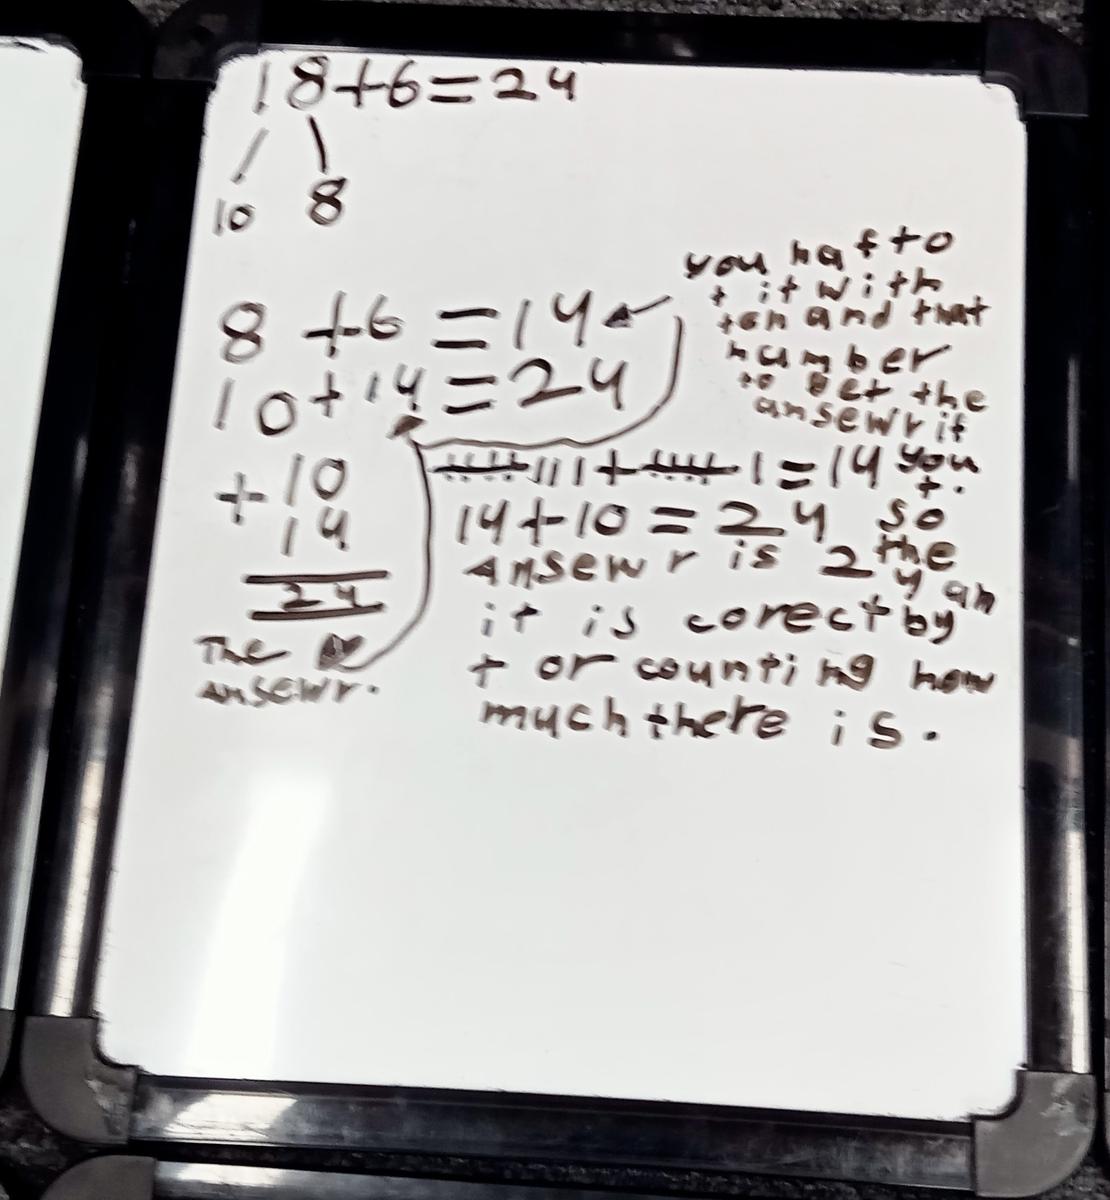 18+6=24
10 8
8+6=14
10+14=24
+10
14
24
The
ansewr.
you haf to
+ it with
ten and that
number
to get the
ansewr if
you
+.
卌111+卌1=14
14+10=24 so
the
ansewr is 24 an
it is corect by
+ or counting how
much there is.